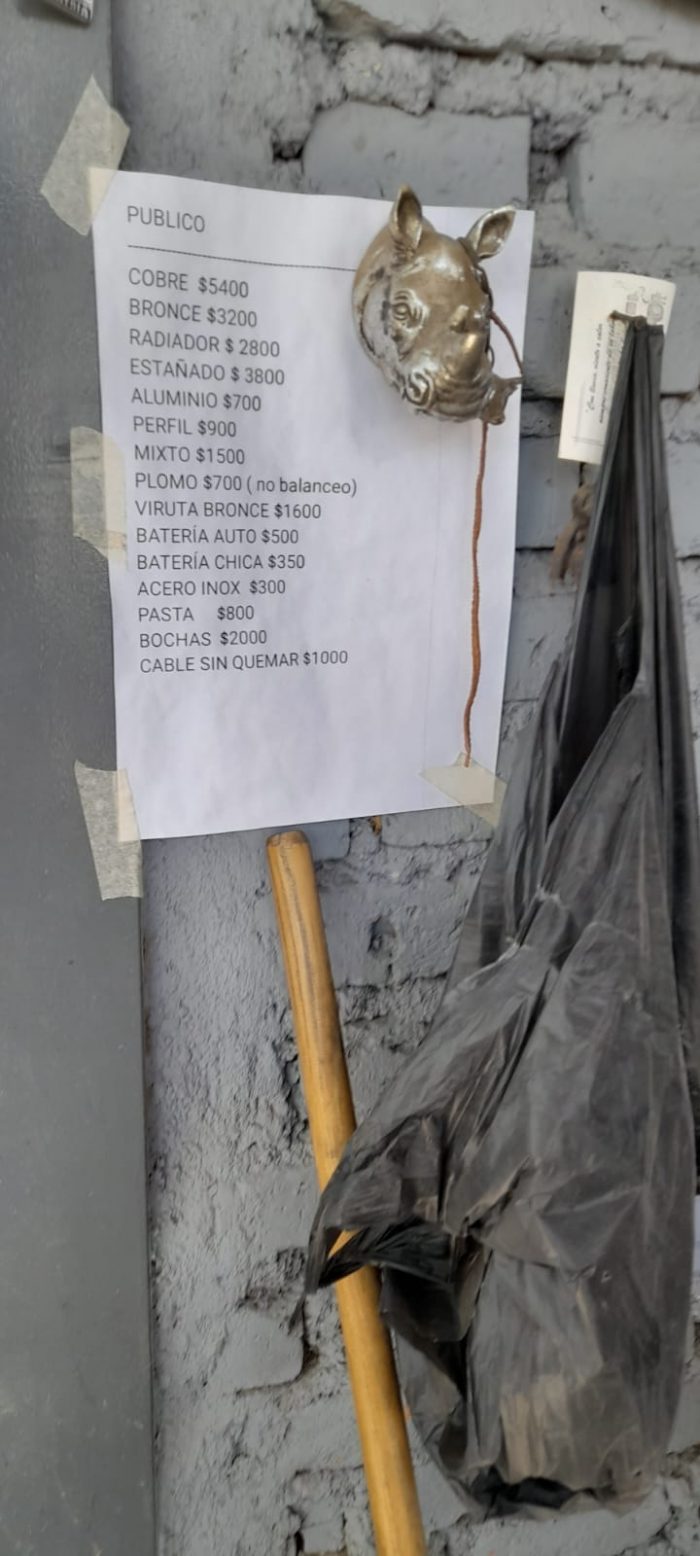 PUBLICO
COBRE $5400
BRONCE $3200
RADIADOR $ 2800
ESTAÑADO $ 3800
ALUMINIO $700
PERFIL $900
MIXTO $1500
PLOMO $700 ( no balanceo)
VIRUTA BRONCE $1600
BATERÍA AUTO $500
BATERÍA CHICA $350
ACERO INOX $300
PASTA $800
BOCHAS $2000
CABLE SIN QUEMAR $1000